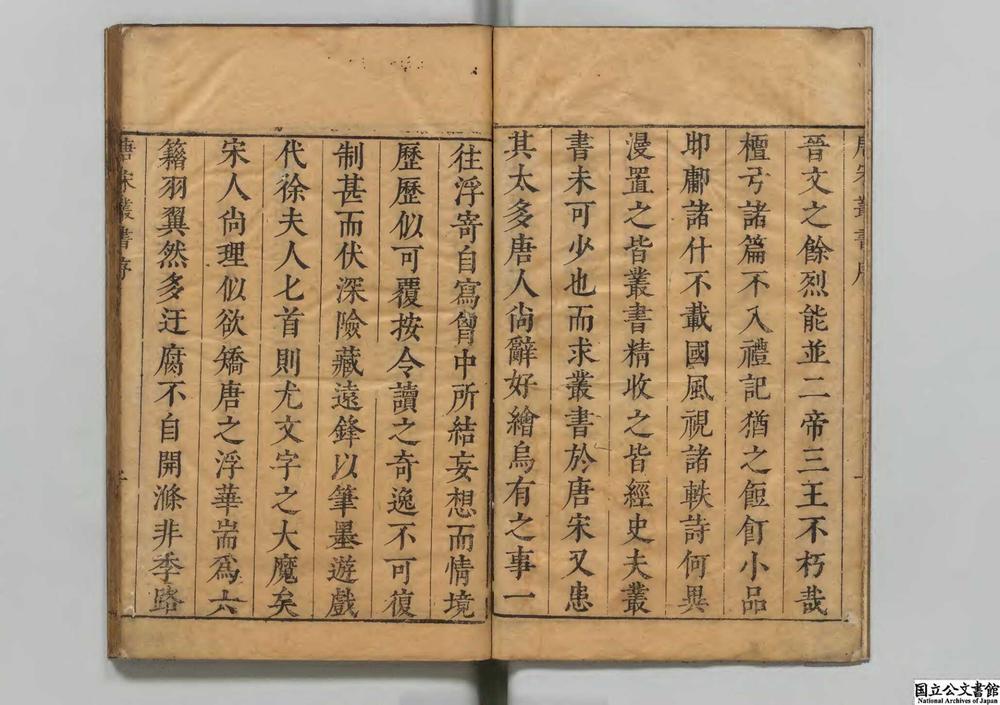 晉文之餘烈能並二帝三王不朽哉
檀弓諸篇不入禮記猶之餖飣小品
卽鄘諸什不載國風視諸軼詩何異
漫置之皆叢書精收之皆經史夫叢
書未可少也而求叢書於唐宋又患
其太多唐人尙辭好繪烏有之事一
往浮寄自寫曾中所結妄想而情境
歷歷似可覆按令讀之奇逸不可復
制甚而伏深險藏遠鋒以筆墨遊戲
代徐夫人匕首則尤文字之大魔矣
宋人尙理似欲矯唐之浮華耑爲六
籍羽翼然多迂腐不自開滌非季路
唐宋叢書序
国立公文書館
National Archives of Japan